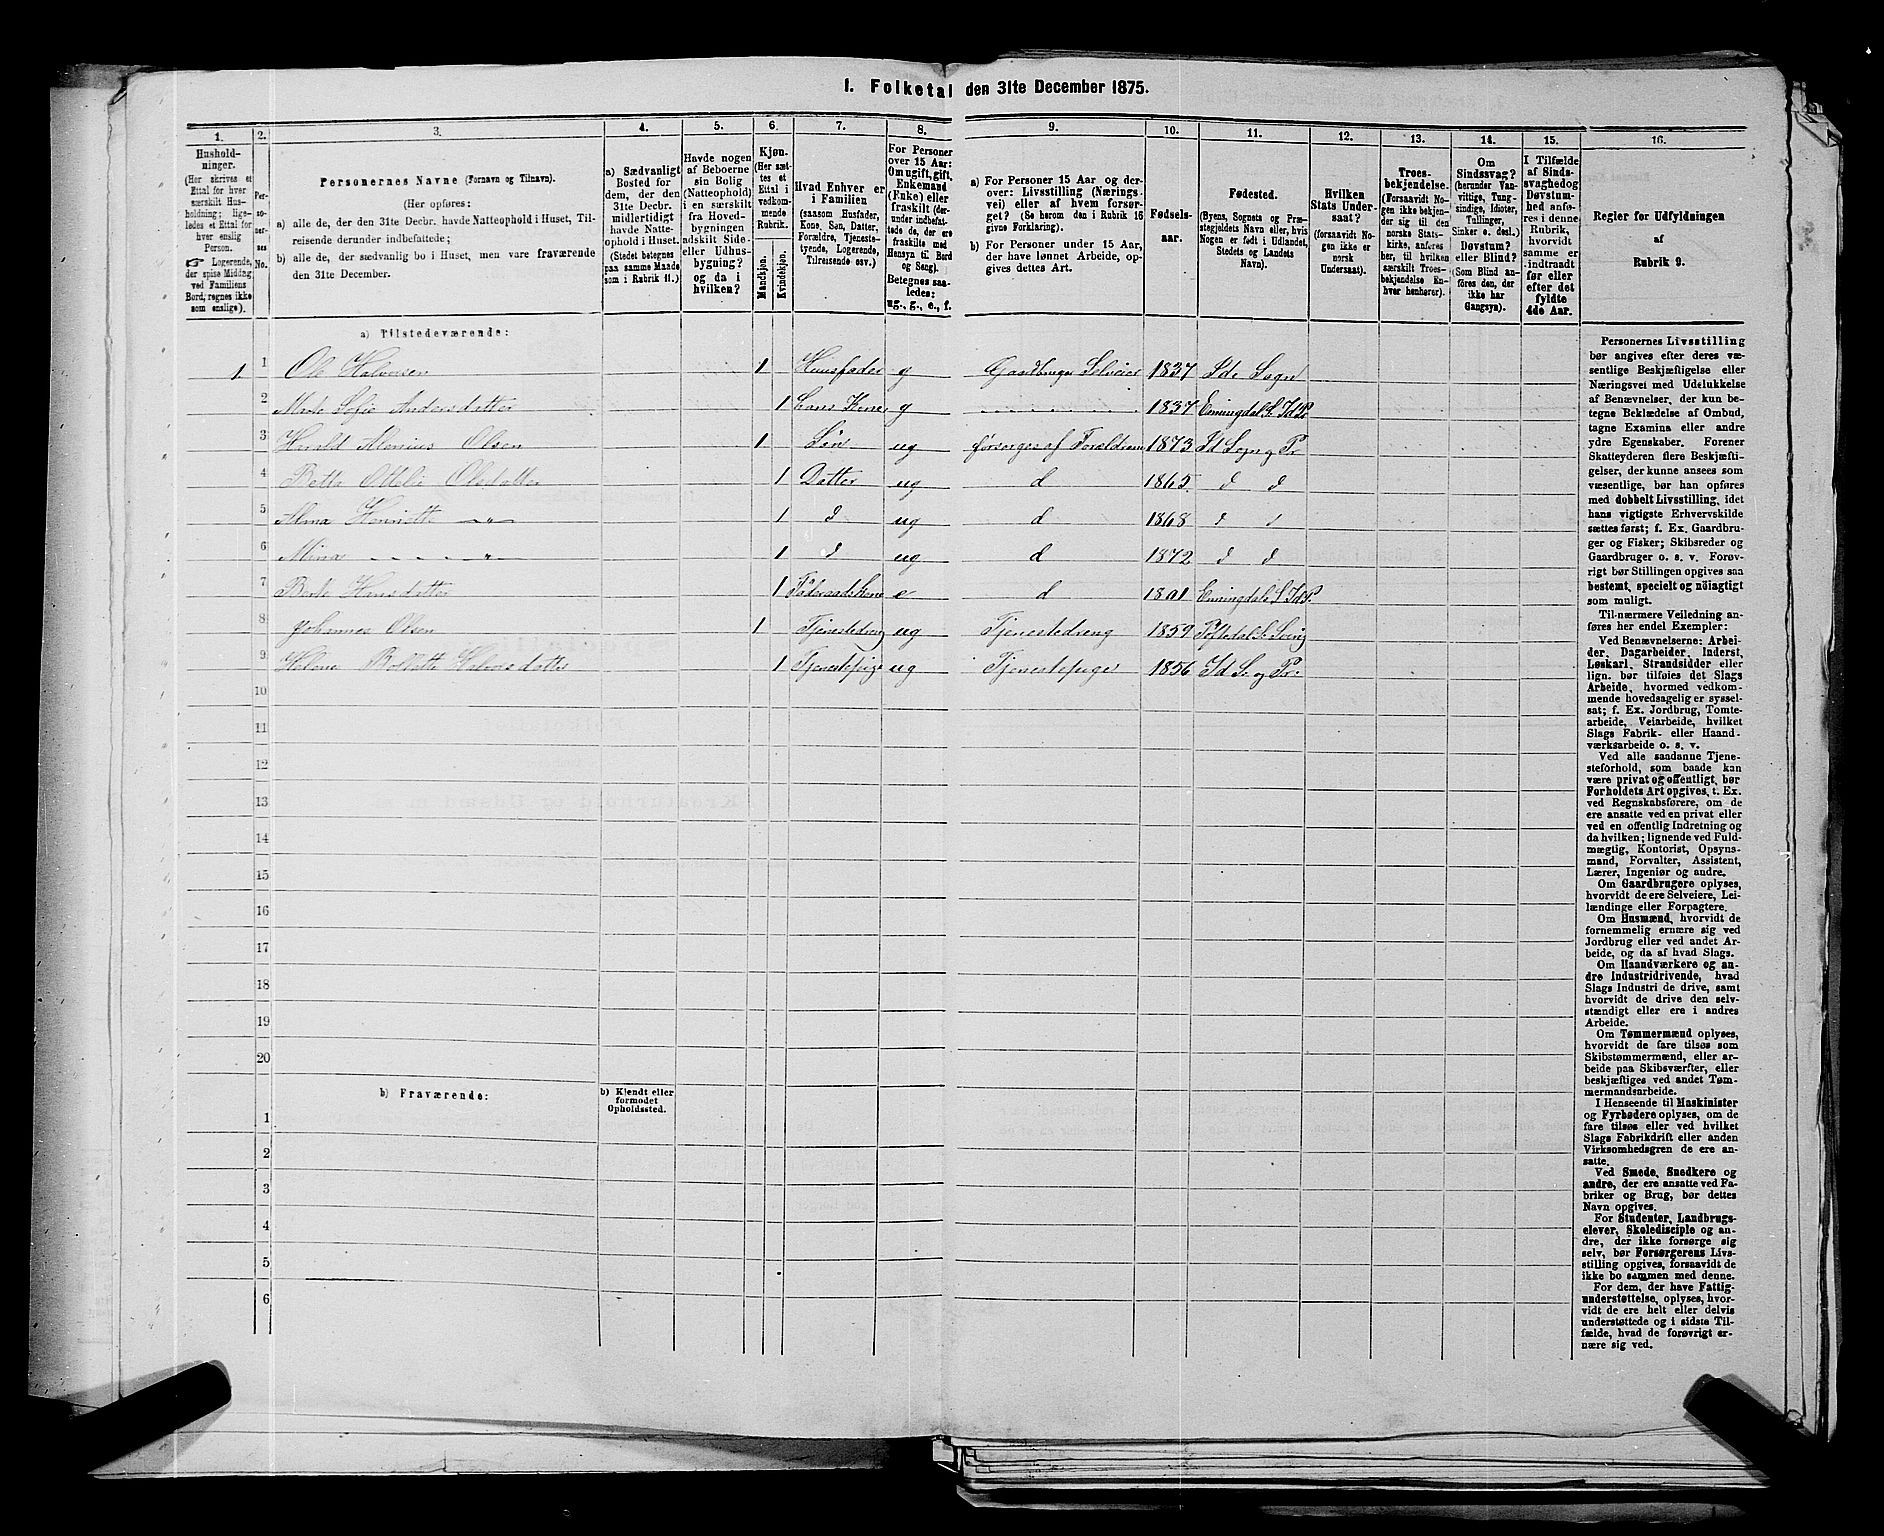 I. Folketal den 31te December 1875.
1.
Hushold-
ninger.
(Her skrives et
Ettal for hver
særskilt Hus-
holdning; lige-
ledes et Ettal for
hver enslig
Person.
☞ Logerende,
der spise Middag
ved Familiens
Bord, regnes ikke
som enslige).
2.
Per-
so-
ner-
nes
No.
3.
Personernes Navne (Fornavn og Tilnavn).
(Her opføres:
a) alle de, der den 31te Decbr. havde Natteophold i Huset, Til-
reisende derunder indbefattede;
b) alle de, der sædvanlig bo i Huset, men vare fraværende
den 31te December.
4.
a) Sædvanligt
Bosted for
dem, der den
31te Decbr.
midlertidigt
havde Natte-
ophold i Huset.
(Stedet betegnes
paa samme Maade
som i Rubrik 11.)
5.
Havde nogen
af Beboerne
sin Bolig
(Natteophold)
i en særskilt
fra Hoved-
bygningen
adskilt Side-
eller Udhus-
bygning?
og da i
hvilken?
6.
Kjøn.
(Her sæt-
tes et
Ettal i
vedkom-
mende
Rubrik.
Mandkjøn.
Kvindekjøn.
7.
Hvad Enhver er
i Familien
(saasom Husfader,
Kone, Søn, Datter,
Forældre, Tjeneste-
tyende, Logerende,
Tilreisende osv.)
8.
For Personer
over 15 Aar:
Om ugift, gift,
Enkemand
(Enke) eller
fraskilt (der-
under indbefat-
tede de, der ere
fraskilte med
Hensyn til Bord
og Seng).
Betegnes saa-
ledes:
ug., g., e., f.
9.
a) For Personer 15 Aar og der-
over: Livsstilling (Nærings-
vei) eller af hvem forsør-
get? (Se herom den i Rubrik 16
givne Forklaring).
b) For Personer under 15 Aar,
der have lønnet Arbeide, op-
gives dettes Art.
10.
Fødsels-
aar.
11.
Fødested.
(Byens, Sognets og Præ-
stegjeldets Navn eller, hvis
Nogen er født i Udlandet,
Stedets og Landets
Navn).
12.
Hvilken
Stats Under-
saat?
(forsaavidt No-
gen ikke er
norsk
Undersaat).
13.
Troes-
bekjendelse.
(Forsaavidt No-
gen ikke bekjen-
der sig til den
norske Stats-
kirke, anføres
her, til hvilken
særskilt Troes-
bekjendelse En-
hver henhører).
14.
Om
Sindssvag?
(herunder Van-
vittige, Tung-
sindige, Idioter,
Tullinger,
Sinker o. desl.)
Døvstum?
eller Blind?
(Som Blind an-
føres den, der
ikke har
Gangsyn).
15.
I Tilfælde
af Sinds-
svaghed og
Døvstum-
hed anfø-
res i denne
Rubrik,
hvorvidt
samme er
indtraadt
før eller
efter det
fyldte
4de Aar.
16.
Regler for Udfyldningen
af
Rubrik 9.
a) Tilstedeværende:
1. 1 Ole Halvorsen 1 Huusfader g Gaardbruger Selveier 1837 Ide Sogn
2 Marte Sofie Andersdatter 1 hans Kone g 1837 Enningdal S. Id Pr
3 Harald Alenius Olsen 1 Søn ug forsørges af Forældrene 1873 Id Sogn og Pr
4 Otteli Olsdatter 1 Datter ug d 1865 d d
5 Alma Henriette —"— 1 d ug d 1868 d d
6 Mina - - - - " 1 d ug d 1872 d d
7 Berte Hansdatter 1 Føderaadskone e d 1801 Enningdale S Id P.
8 Johannes Olsen 1 Tjenestedreng ug Tjenestedreng 1859
9 Helene Halvorsdatter 1 Tjenestepige ug Tjenestepige 1856 Id S. og Pr.
10
11
12
13
14
15
16
17
18
19
20
b) Fraværende:
b) Kjendt eller
formodet
Opholdssted.
1
2
3
4
5
6
Personernes Livsstilling
bør angives efter deres væ-
sentlige Beskjæftigelse eller
Næringsvei med Udelukkelse
af Benævnelser, der kun be-
tegne Beklædelse af Ombud,
tagne Examina eller andre
ydre Egenskaber. Forener
Skatteyderen flere Beskjæfti-
gelser, der kunne ansees som
væsentlige, bør han opføres
med dobbelt Livsstilling, idet
hans vigtigste Erhvervskilde
sættes først; f. Ex. Gaardbru-
ger og Fisker; Skibsreder og
Gaardbruger o. s. v. Forøv-
rigt bør Stillingen opgives saa
bestemt, specielt og nöiagtigt
som muligt.
Til nærmere Veiledning an-
føres her endel Exempler:
Ved Benævnelserne: Arbei-
der, Dagarbeider, Inderst,
Løskarl, Strandsidder eller
lign. bør tilføies det Slags
Arbeide, hvormed vedkom-
mende hovedsagelig er syssel-
sat; f. Ex. Jordbrug, Tomte-
arbeide, Veiarbeide, hvilket
Slags Fabrik- eller Haand-
værksarbeide o. s. v.
Ved alle saadanne Tjene-
steforhold, som baade kan
være privat og offentligt, bør
Forholdets Art opgives, t. Ex.
ved Regnskabsførere, om de
ere ansatte ved en privat eller
ved en offentlig Indretning og
da hvilken; lignende ved Fuld-
mægtig, Kontorist, Opsyns-
mand, Forvalter, Assistent,
Lærer, Ingeniør og andre.
Om Gaardbrugere oplyses,
hvorvidt de ere Selveiere, Lei-
lændinge eller Forpagtere.
Om Husmænd, hvorvidt de
fornemmelig ernære sig ved
Jordbrug eller ved andet Ar-
beide, og da af hvad Slags.
Om Haandværkere og an-
dre Industridrivende, hvad
Slags Industri de drive, samt
hvorvidt de drive den selv-
stændigt eller ere i andres
Arbeide.
Om Tømmermænd oplyses,
hvorvidt de fare tilsøs som
Skibstømmermænd, eller ar-
beide paa Skibsværfter, eller
beskjæftiges ved andet Tøm-
mermandsarbeide.
I Henseende til Maskinister
og Fyrbødere oplyses, om de
fare tilsøs eller ved hvilket
Slags Fabrikdrift eller anden
Virksomhedsgren de ere an-
satte.
Ved Smede, Snedkere og
andre, der ere ansatte ved Fa-
briker og Brug, bør dettes
Navn opgives.
For Studenter, Landbrugs-
elever, Skoledisciple og an-
dre, der ikke forsørge sig
selv, bør Forsørgerens Livs-
stilling opgives, forsaavidt de
ikke bo sammen med denne.
For dem, der have Fattig-
understøttelse, oplyses, hvor-
vidt de ere helt eller delvis
understøttede og i sidste Til-
fælde, hvad de forøvrigt er-
nære sig ved.